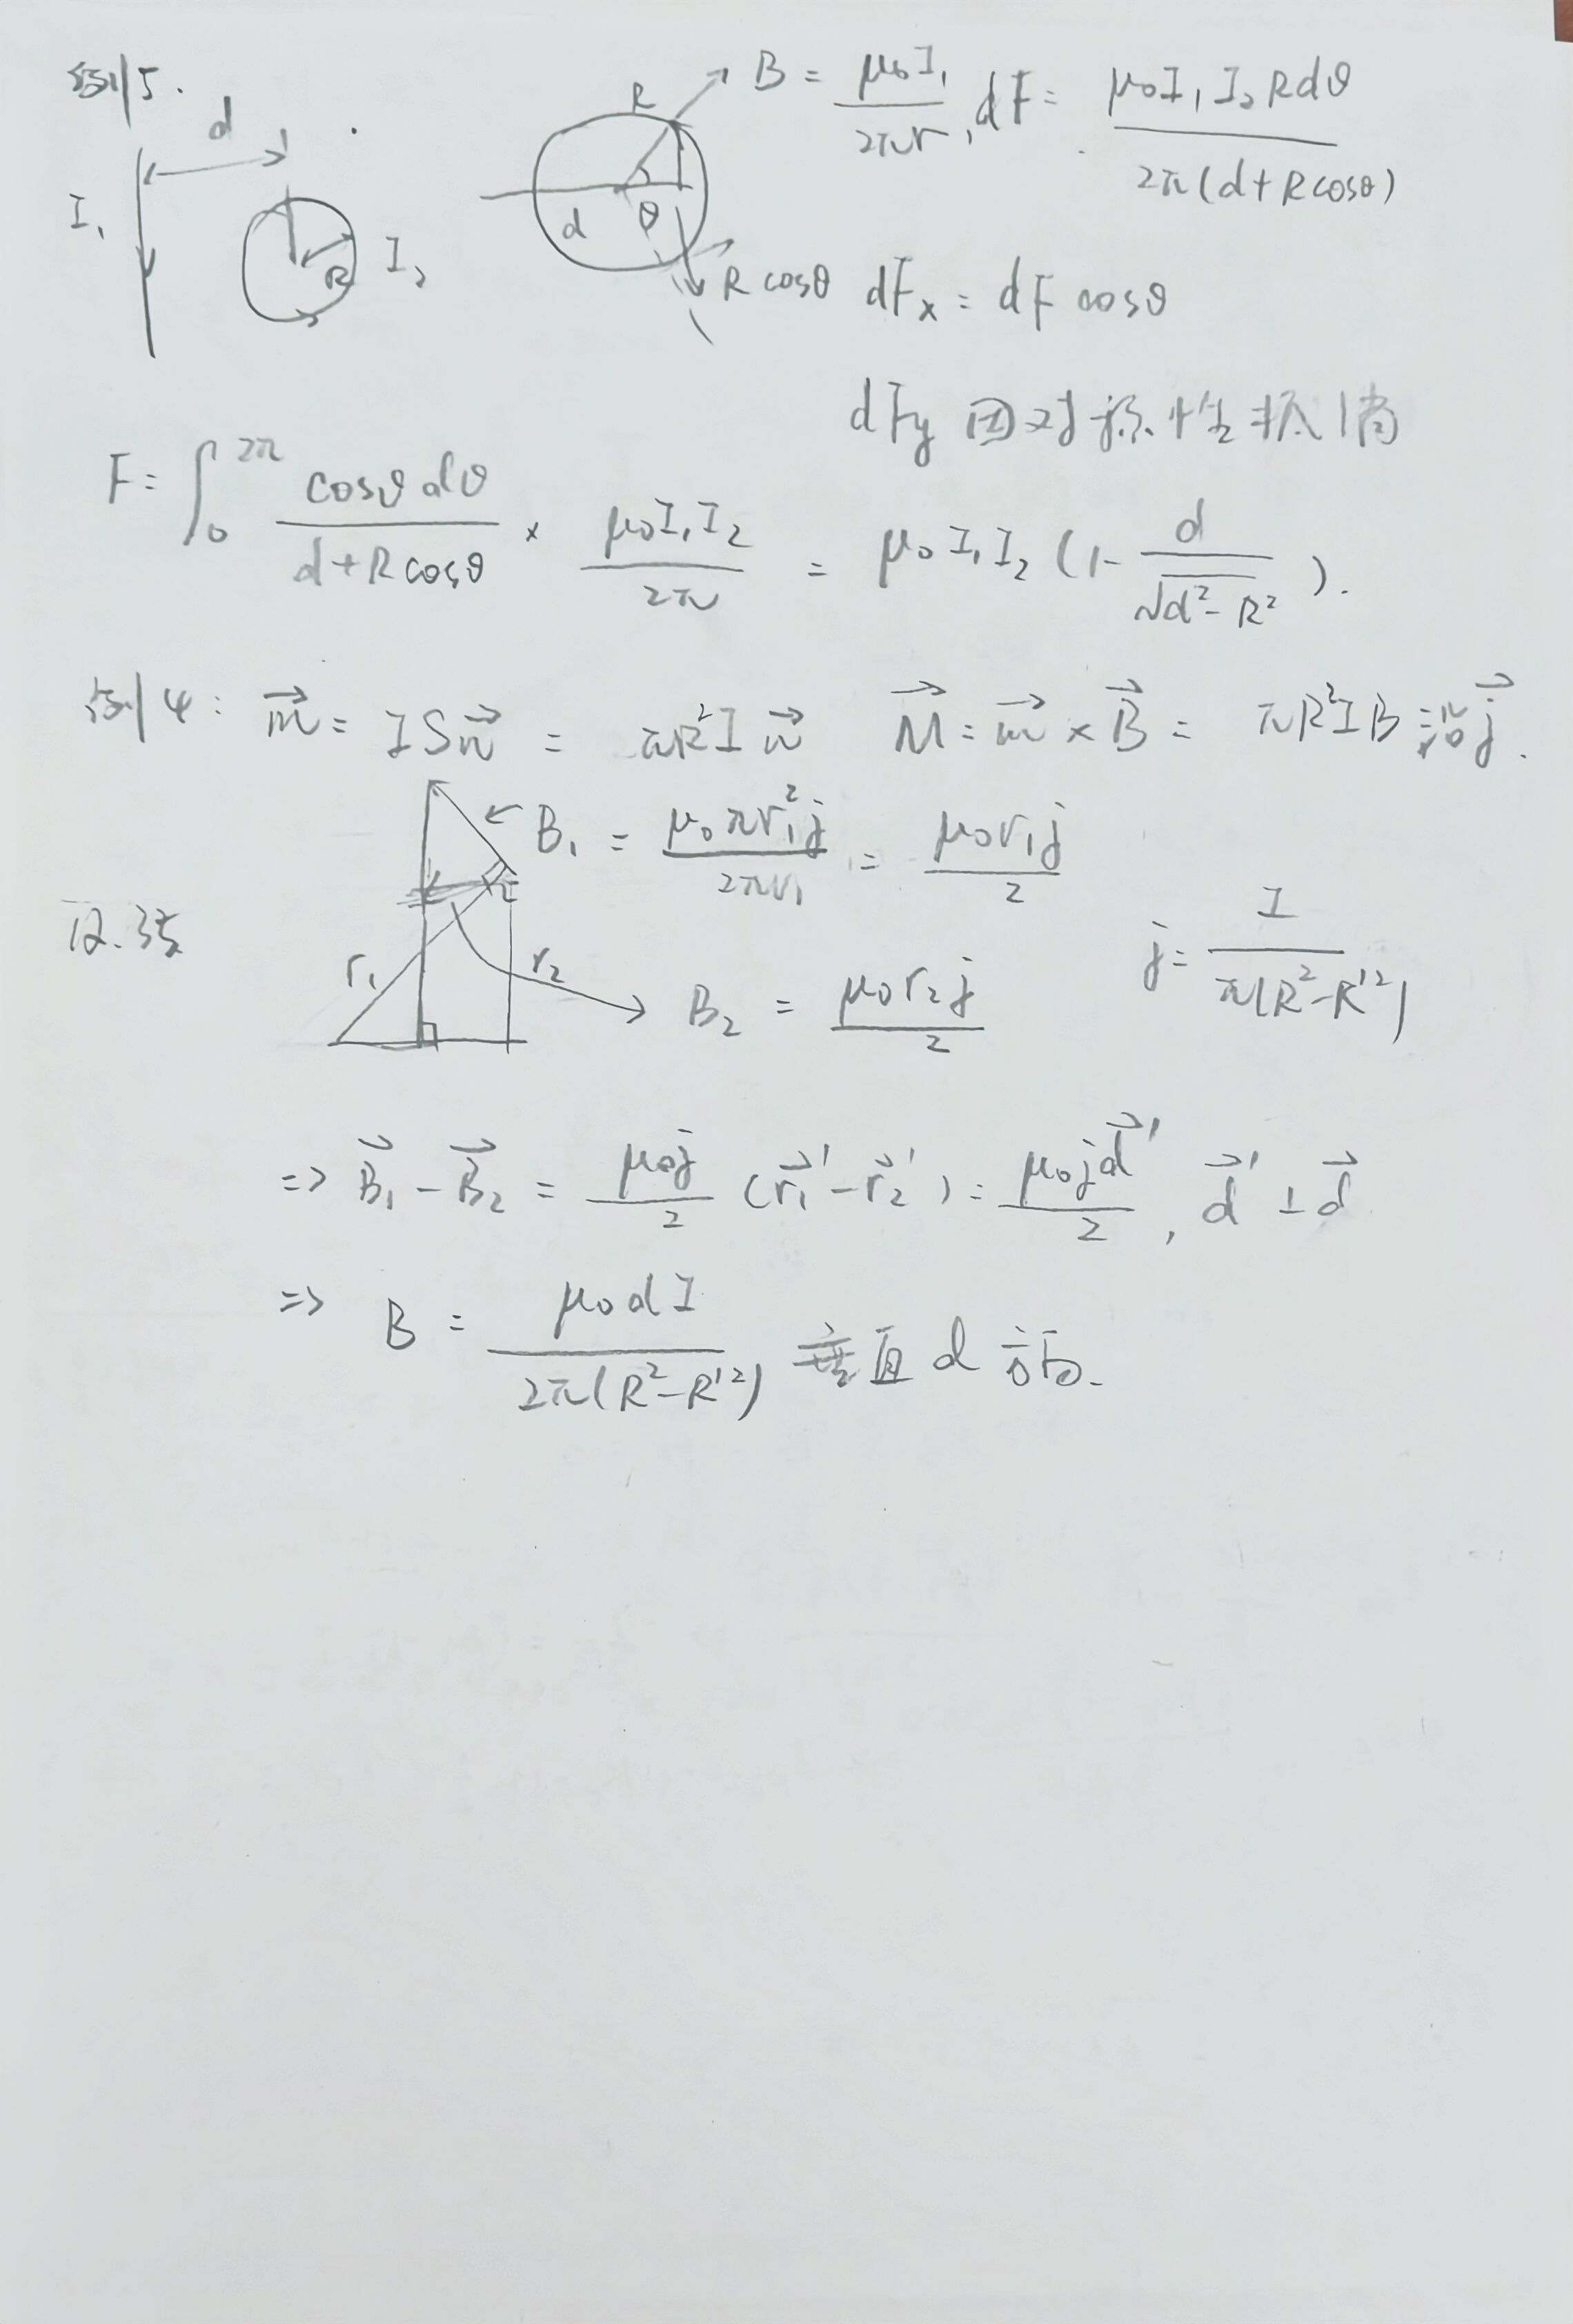 例5.
d
I₁
R
I₂
R
d
θ
R cosθ
B = μ₀I₁/2πr, dF = μ₀I₁I₂Rdθ/2π(d+Rcosθ)
dFx = dF cosθ
dFy 因对称性抵消
F = ∫₀^2π cosθdθ/(d+Rcosθ) × μ₀I₁I₂/2π = μ₀I₁I₂(1-d/√(d²-R²)).
例4: m⃗ = ISn⃗ = πR²In⃗ M⃗ = m⃗×B⃗ = πR²IB 沿j⃗.
12.35
r₁
r₂
B₁ = μ₀πr₁²j/2πr₁ = μ₀r₁j/2
j = I/π(R²-R'²)
B₂ = μ₀r₂j/2
=> B⃗₁-B⃗₂ = μ₀j/2 (r⃗₁'-r⃗₂') = μ₀jd⃗'/2, d⃗'⊥d⃗
=> B = μ₀dI/2π(R²-R'²) 垂直d方向.